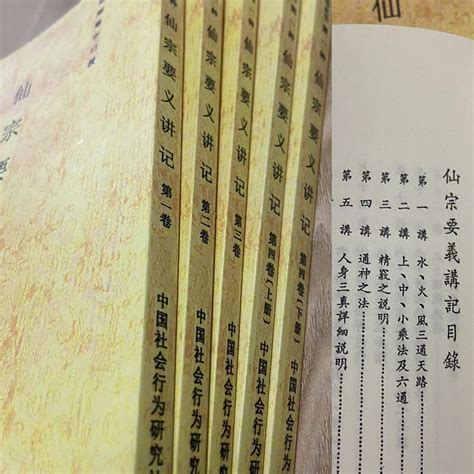 仙宗要
仙宗要义讲记 第一卷 中国社会行为研究
仙宗要义讲记 第二卷 中国社会行为研究
仙宗要义讲记 第三卷 中国社会行为研究
仙宗要义讲记 第四卷(上册) 中国社会行为研究
仙宗要义讲记 第四卷(下册) 中国社会行为研究
仙
仙宗要義講記目錄
第一講 水、火、風三通天路
第二講 上、中、小乘法及六通
第三講 精竅之說明
第四講 通神之法
第五講 人身三真詳細説明